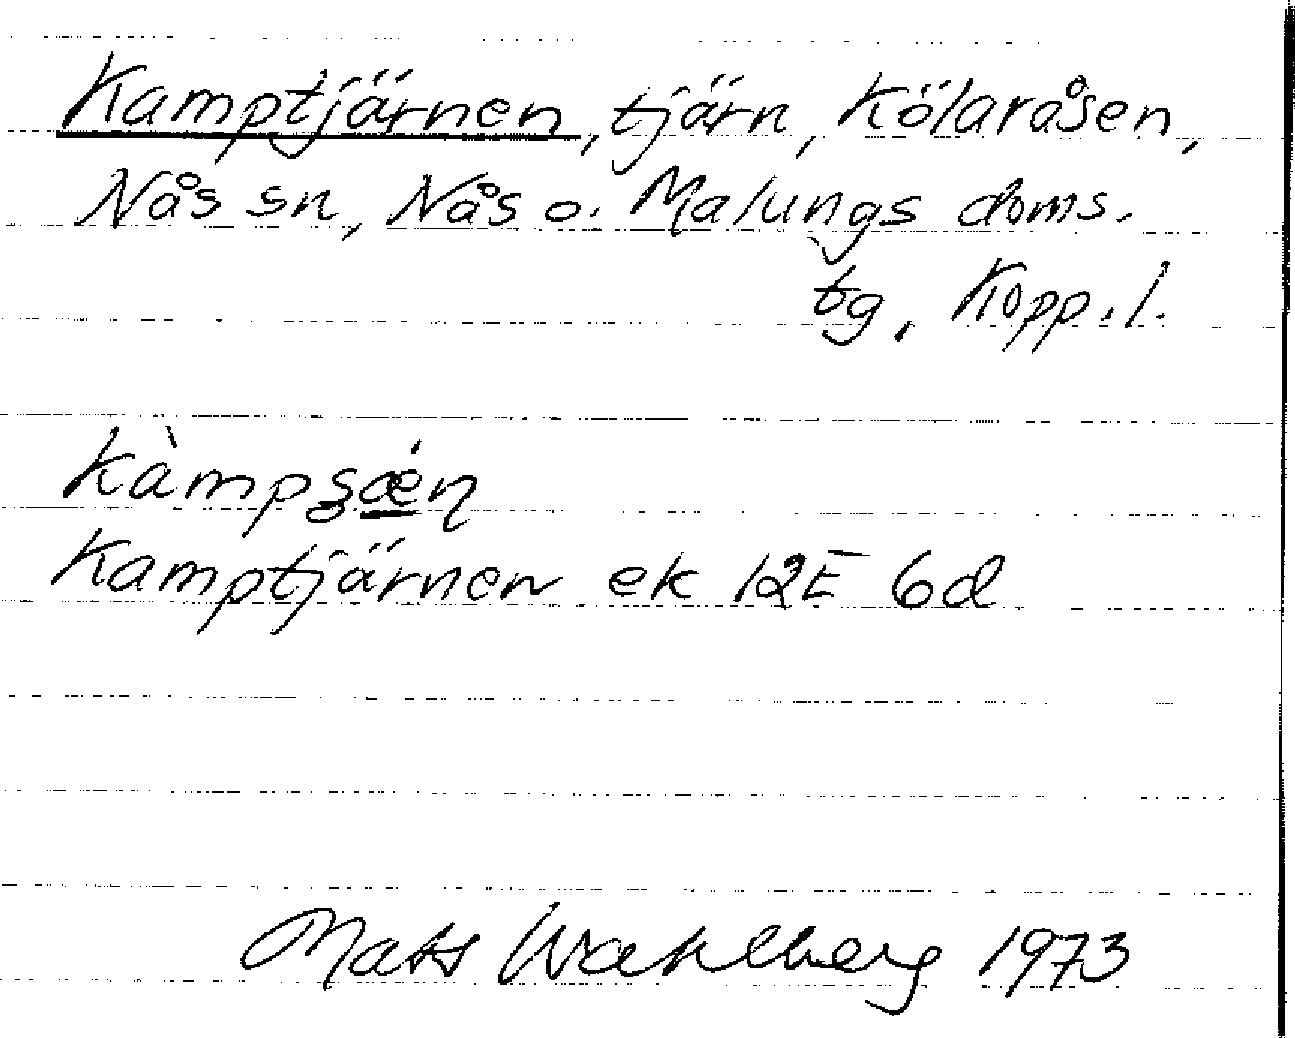 Kamptjärnen, tjärn, Kölaråsen,
Nås sn, Nås o. Malungs doms.
tg, Kopp. l.
kàmpʂǽɳ
Kamptjärnen ek 12E 6d
Mats Wahlberg 1973